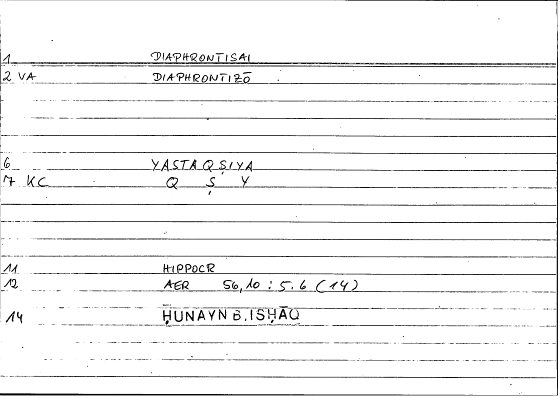 1 DIAPHRONTISAI
2 VA DIAPHRONTIZŌ
6 YASTAQṢIYA
7 KC Q Ṣ Y
11 HIPPOCR
12 AER 56,10 : 5.6 (14)
14 ḤUNAYN B.ISḤĀQ